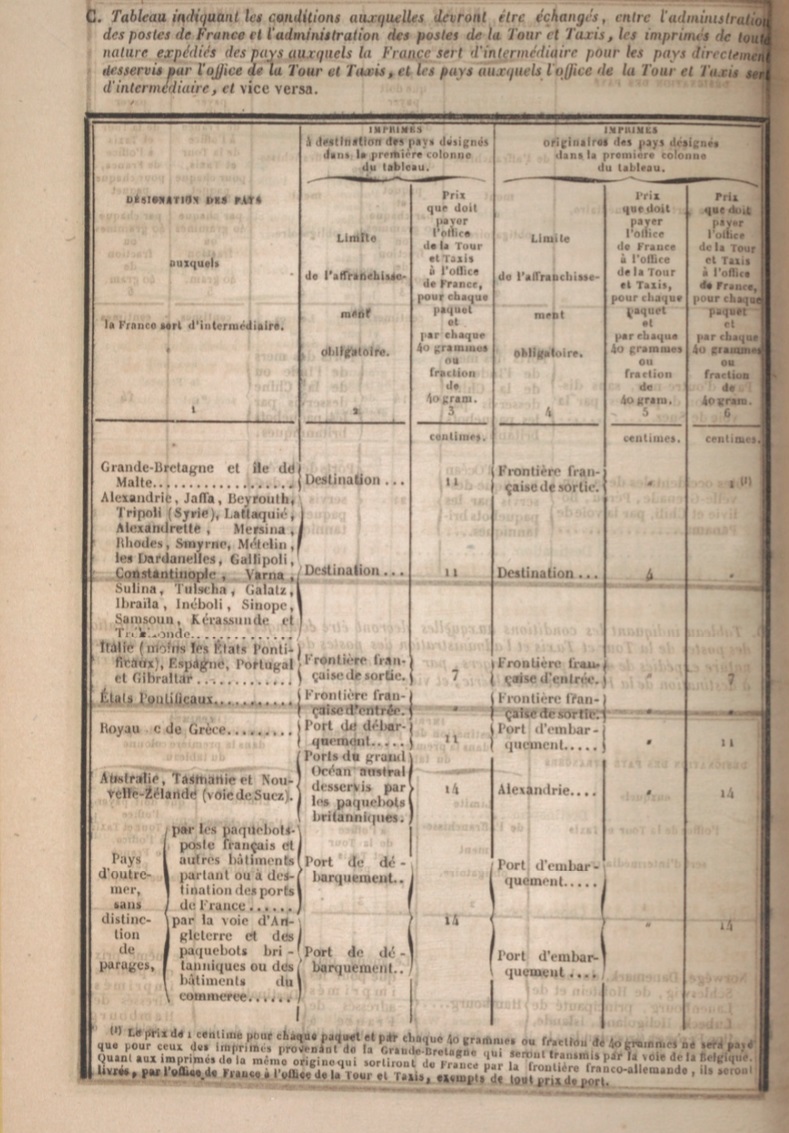 C. Tableau indiquant les conditions auxquelles devront être échangés, entre l'administration
des postes de France et l'administration des postes de la Tour et Taxis, les imprimés de toute
nature expédiés des pays auxquels la France sert d'intermédiaire pour les pays directement
desservis par l'office de la Tour et Taxis, et les pays auxquels l'office de la Tour et Taxis sert
d'intermédiaire, et vice versa.
DÉSIGNATION DES PAYS
auxquels
la France sert d'intermédiaire.
1
IMPRIMÉS
à destination des pays désignés
dans la première colonne
du tableau.
Limite
de l'affranchisse-
ment
obligatoire.
2
Prix
que doit
payer
l'office
de la Tour
et Taxis
à l'office
de France,
pour chaque
paquet
et
par chaque
40 grammes
ou
fraction
de
40 gram.
3
IMPRIMÉS
originaires des pays désignés
dans la première colonne
du tableau.
Limite
de l'affranchisse-
ment
obligatoire.
4
Prix
que doit
payer
l'office
de France
à l'office
de la Tour
et Taxis,
pour chaque
paquet
et
par chaque
40 grammes
ou
fraction
de
40 gram.
5
Prix
que doit
payer
l'office
de la Tour
et Taxis
à l'office
de France,
pour chaque
paquet
et
par chaque
40 grammes
ou
fraction
de
40 gram.
6
centimes.
centimes.
centimes.
Grande-Bretagne et île de
Malte..................
Destination ...
11
Frontière fran-
çaise de sortie.
"
1 (1)
Alexandrie, Jaffa, Beyrouth,
Tripoli (Syrie), Lattaquié,
Alexandrette, Mersina,
Rhodes, Smyrne, Mételin,
les Dardanelles, Gallipoli,
Constantinople, Varna,
Sulina, Tulscha, Galatz,
Ibraïla, Inéboli, Sinope,
Samsoun, Kérassunde et
Destination ...
11
Destination ...
4
"
Italie (moins les États Ponti-
ficaux), Espagne, Portugal
et Gibraltar ............
Frontière fran-
çaise de sortie.
7
Frontière fran-
çaise d'entrée.
"
7
États Pontificaux...........
Frontière fran-
çaise d'entrée.
"
Frontière fran-
çaise de sortie.
"
"
Royau e de Grèce.........
Port de débar-
quement.....
11
Port d'embar-
quement.....
"
11
Australie, Tasmanie et Nou-
velle-Zélande (voie de Suez).
Ports du grand
Océan austral
desservis par
les paquebots
britanniques.
14
Alexandrie....
"
14
Pays
d'outre-
mer,
sans
distinc-
tion
de
parages,
par les paquebots-
poste français et
autres bâtiments
partant ou à des-
tination des ports
de France ......
Port de dé-
barquement..
Port d'embar-
quement.....
par la voie d'An-
gleterre et des
paquebots bri-
tanniques ou des
bâtiments du
commerce......
Port de dé-
barquement..
14
Port d'embar-
quement ....
"
14
(1) Le prix de 1 centime pour chaque paquet et par chaque 40 grammes ou fraction de 40 grammes ne sera payé
que pour ceux des imprimés provenant de la Grande-Bretagne qui seront transmis par la voie de la Belgique.
Quant aux imprimés de la même origine qui sortiront de France par la frontière franco-allemande, ils seront
livrés, par l'office de France à l'office de la Tour et Taxis, exempts de tout prix de port.